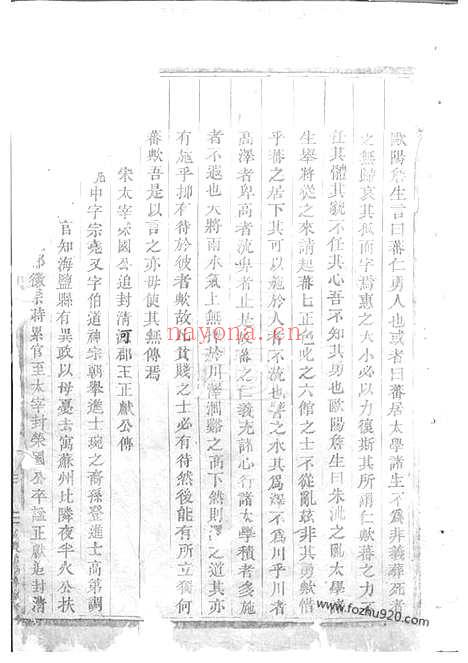 歐陽詹生言曰蕃仁勇人也或者曰蕃居太學諸生不爲非義葬死者
之無歸哀其孤而字焉惠之大小必以力復斯其所謂仁歟蕃之力
任其體其貌不任其心吾不知其勇也歐陽詹生曰朱泚之亂太學
生舉將從之來請起蕃蕃正色叱之六館之士不從亂茲非其勇歟惜
乎蕃之居下其可以施於人者不流也譬之水其爲澤不爲川乎川者
高澤者卑高者流卑者止是故蕃之仁義充諸心行諸太學積者多施
者不遐也天將雨水氣上無擇於川澤澗谿之高下然則澤之道其亦
有施乎抑有待於彼者歟故凡貧賤之士必有待然後能有所立獨何
蕃歟吾是以言之亦毋使其無傳焉
宋太宰榮國公追封清河郡王正獻公傳
中字宗堯又字伯道神宗朝舉進士琬之裔孫登進士高第調
官知海鹽縣有異政以母憂去寓蘇州比隣夜半火公扶
徽宗時累官至太宰封榮國公卒諡正獻追封清
nayona.cn
www.fozhu920.com